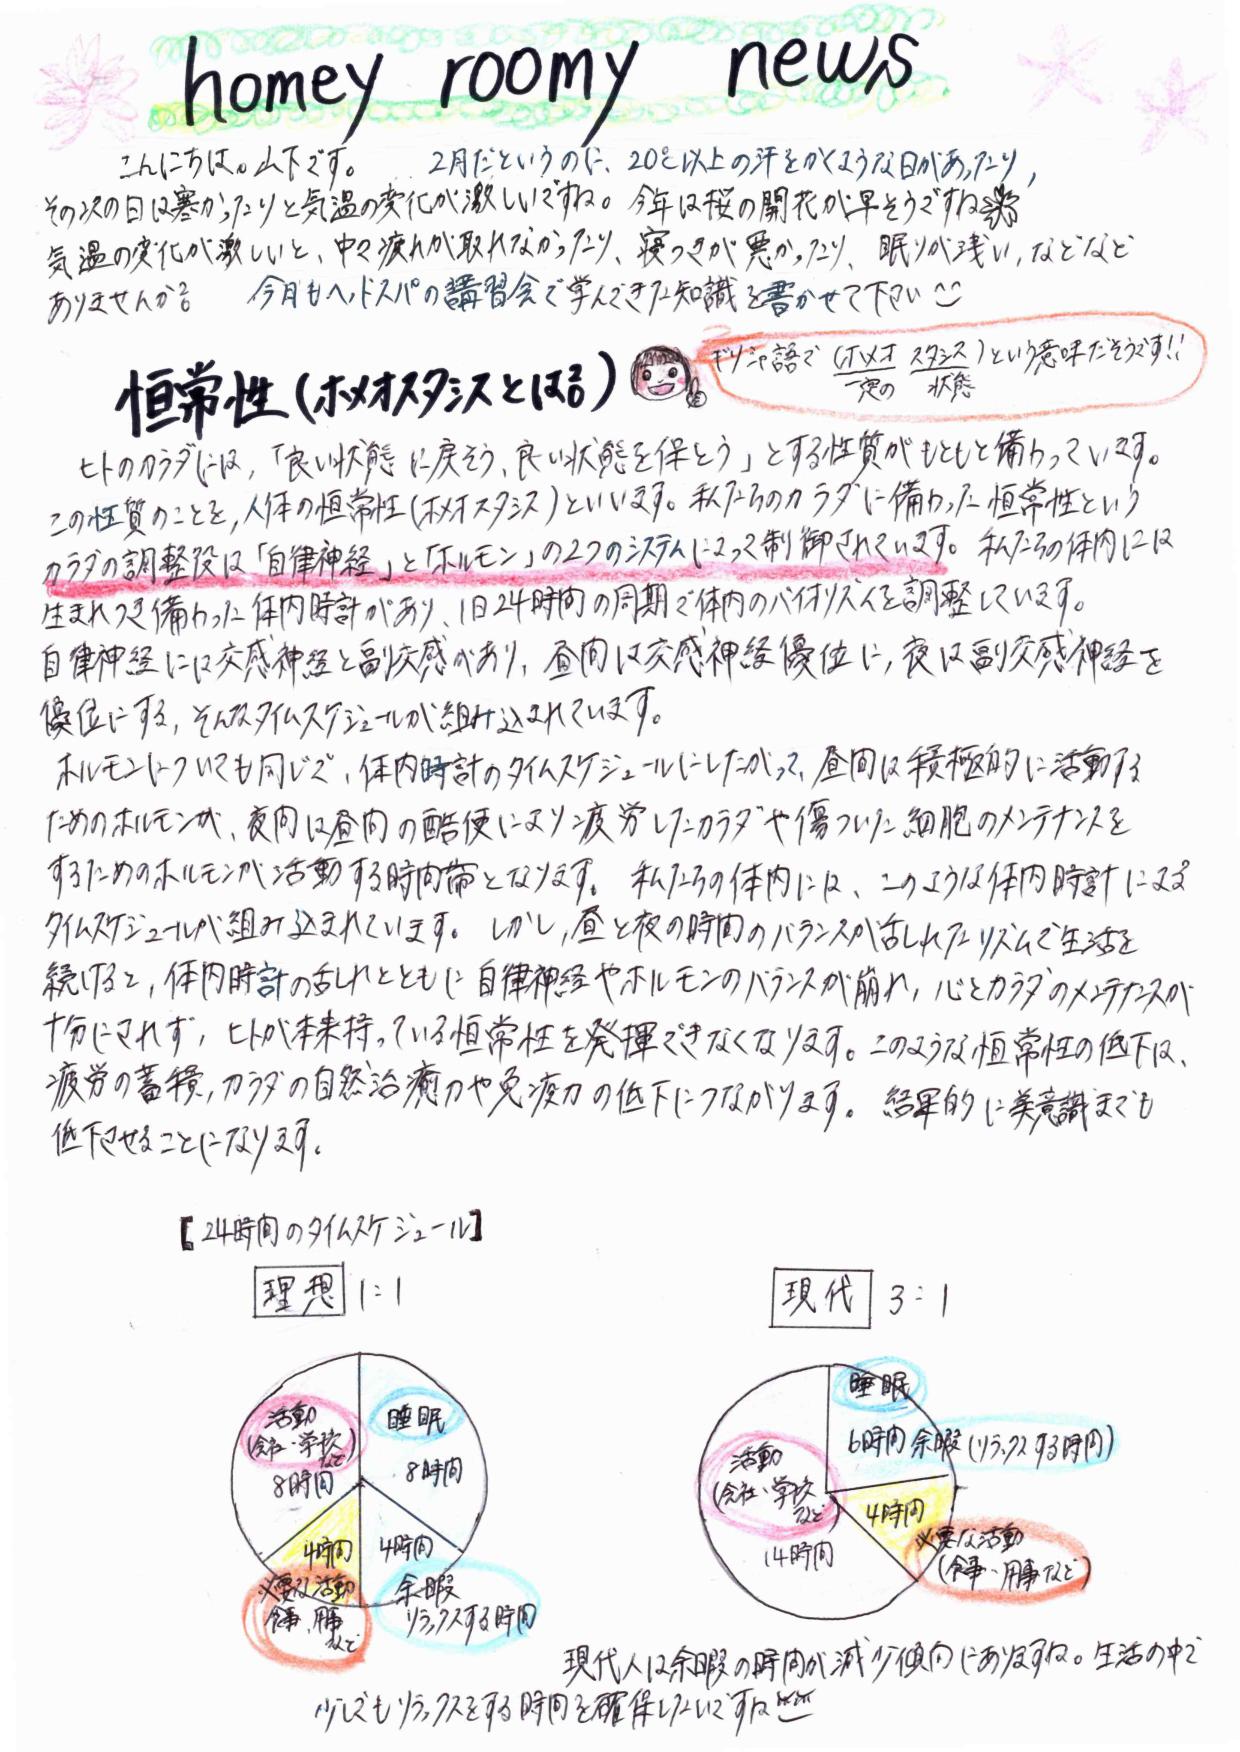 homey roomy news
こんにちは。山下です。 2月だというのに、20℃以上の汗をかくような日があったり,
その次の日は寒かったりと気温の変化が激しいですね。今年は桜の開花が早そうですね
気温の変化が激しいと、中々疲れが取れなかったり、寝つきが悪かったり、眠りが浅い,などなど
ありませんか? 今月もヘッドスパの講習会で学んできた知識を書かせて下さい
恒常性(ホメオスタシスとは?)
ギリシャ語で(ホメオ スタシス)という意味だそうです!!
一定の 状態
ヒトのカラダには,「良い状態に戻そう、良い状態を保とう」とする性質がもともと備わっています。
この性質のことを,人体の恒常性(ホメオスタシス)といいます。私たちのカラダに備わった恒常性という
カラダの調整役は「自律神経」と「ホルモン」の2つのシステムによって制御されています。私たちの体内には
生まれつき備わった体内時計があり、1日24時間の周期で体内のバイオリズムを調整しています。
自律神経には交感神経と副交感があり、昼間は交感神経優位に,夜は副交感神経を
優位にする,そんなタイムスケジュールが組み込まれています。
ホルモンについても同じで、体内時計のタイムスケジュールにしたがって、昼間は積極的に活動する
ためのホルモンが、夜間は昼間の酷使により疲労したカラダや傷ついた細胞のメンテナンスを
するためのホルモンが活動する時間帯となります。私たちの体内には、このような体内時計による
タイムスケジュールが組み込まれています。しかし,昼と夜の時間のバランスが乱れたリズムで生活を
続けると,体内時計の乱れとともに自律神経やホルモンのバランスが崩れ,心とカラダのメンテナンスが
十分にされず,ヒトが本来持っている恒常性を発揮できなくなります。このような恒常性の低下は、
疲労の蓄積,カラダの自然治癒力や免疫力の低下につながります。結果的に美意識までも
低下させることになります。
【24時間のタイムスケジュール】
理想 1:1
現代 3:1
活動
(会社・学校
など)
8時間
睡眠
8時間
4時間
必要な活動
食事、用事
など
4時間
余暇
リラックスする時間
睡眠
6時間
余暇(リラックスする時間)
4時間
必要な活動
(食事・用事など)
活動
(会社・学校
など)
14時間
現代人は余暇の時間が減少傾向にありますね。生活の中で
少しでもリラックスをする時間を確保したいですね